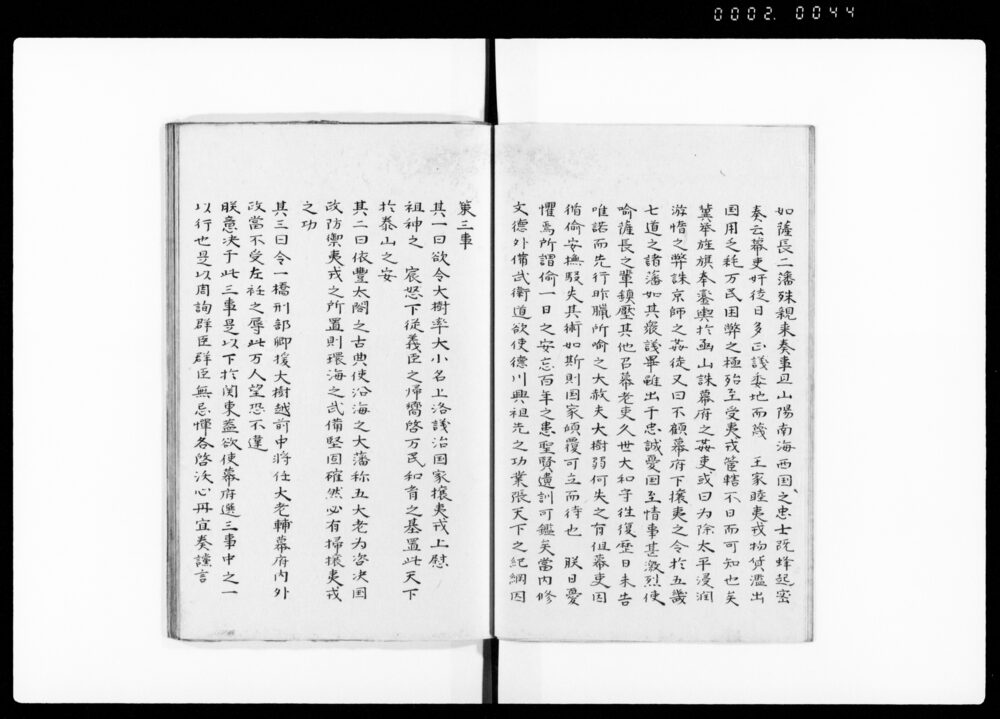 0002. 0044
如薩長二藩殊親来奏事且山陽南海西国之忠士既蜂起密
奏云幕吏奸徒日多正議委地而蔑　王家睦夷戎物貨濫出
国用乏耗万民困弊之極殆至受夷戎管轄不日而可知也矣
冀挙旌旗奉鑾輿於函山誅幕府之姦吏或曰为除太平浸潤
游惰之弊誅京師之姦徒又曰不顧幕府下攘夷之令於五畿
七道之諸藩如其衆議畢雖出于忠誠憂国至情事甚激烈使
喻薩長之輩鎮壓其他召幕老吏久世大和守往復歴日未告
唯諾而先行昨臘所喻之大赦夫大樹弱何失之有但幕吏因
循偷安撫馭失其術如斯則国家傾覆可立而待也　朕日憂
懼焉所謂偷一日之安忘百年之患聖賢遺訓可鑑矣當内修
文徳外備武衛道欲使徳川興祖先之功業張天下之紀綱因
策三事
其一曰欲令大樹率大小名上洛議治国家攘夷戎上慰
祖神之　宸怒下従義臣之帰嚮啓万民和育之基置此天下
於泰山之安
其二曰依豊太閤之古典使沿海之大藩称五大老为咨决国
政防禦夷戎之所置則環海之武備堅固確然必有掃攘夷戎
之功
其三曰令一橋刑部卿援大樹越前中将任大老輔幕府内外
政當不受左衽之辱此万人望恐不違
朕意决于此三事是以下於関東蓋欲使幕府選三事中之一
以行也是以周詢群臣群臣無忌憚各啓沃心丹宜奏謹言